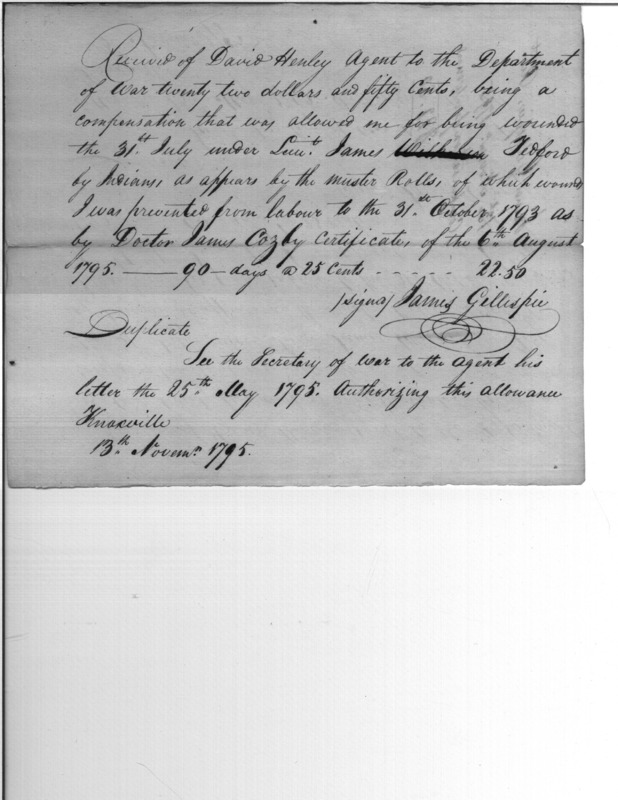 Received of David Henley Agent to the Department
of War twenty two dollars and fifty Cents, being a
compensation that was allowed me for being wounded
the 31st July under Lieut. James Tedford
by Indians, as appears by the muster Rolls, of which wound
I was prevented from labour to the 31st October, 1793 as
by Doctor James Cozby Certificate, of the 6th August
1795. — 90 — days a 25 Cents - - - - - 22.50
/signd/ James Gillespie
Duplicate
See the Secretary of War to the Agent his
letter the 25th May 1795. Authorizing this allowance
Knoxville
13th Novemr 1795.